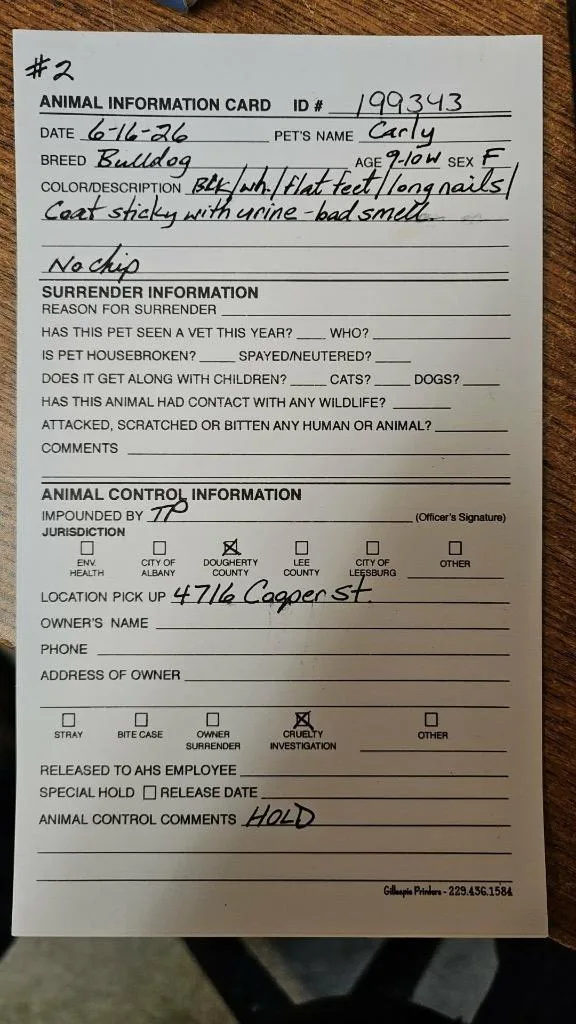 #2
ANIMAL INFORMATION CARD ID # 199343
DATE 6-16-26 PET'S NAME Carly
BREED Bulldog AGE 9-10w SEX F
COLOR/DESCRIPTION Blk/wh./flat feet/long nails/
Coat sticky with urine - bad smell
No chip
SURRENDER INFORMATION
REASON FOR SURRENDER
HAS THIS PET SEEN A VET THIS YEAR? WHO?
IS PET HOUSEBROKEN? SPAYED/NEUTERED?
DOES IT GET ALONG WITH CHILDREN? CATS? DOGS?
HAS THIS ANIMAL HAD CONTACT WITH ANY WILDLIFE?
ATTACKED, SCRATCHED OR BITTEN ANY HUMAN OR ANIMAL?
COMMENTS
ANIMAL CONTROL INFORMATION
IMPOUNDED BY TP (Officer's Signature)
JURISDICTION
ENV. HEALTH CITY OF ALBANY DOUGHERTY COUNTY LEE COUNTY CITY OF LEESBURG OTHER
LOCATION PICK UP 4716 Cagper St.
OWNER'S NAME
PHONE
ADDRESS OF OWNER
STRAY BITE CASE OWNER SURRENDER CRUELTY INVESTIGATION OTHER
RELEASED TO AHS EMPLOYEE
SPECIAL HOLD RELEASE DATE
ANIMAL CONTROL COMMENTS HOLD
Gillespie Printers - 229.436.1584